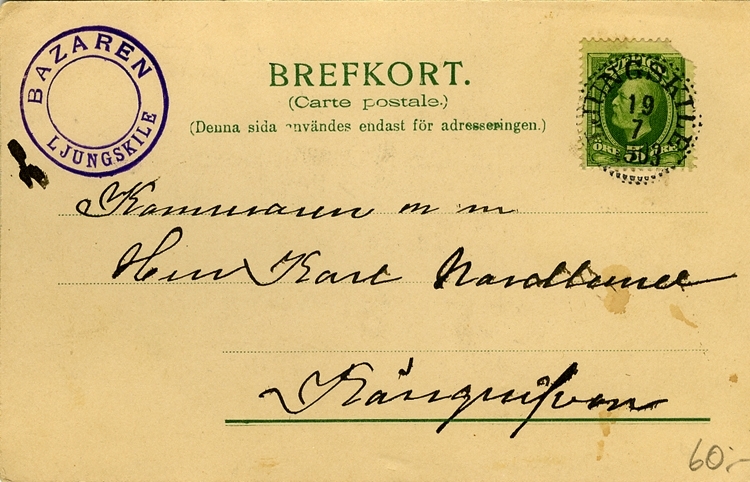 BAZAREN
LJUNGSKILE
BREFKORT.
(Carte postale.)
(Denna sida användes endast för adresseringen.)
LJUNGSKILE
19
7
ÖRE 5 ÖRE
m m
Herr Karl Nordlund
60:-